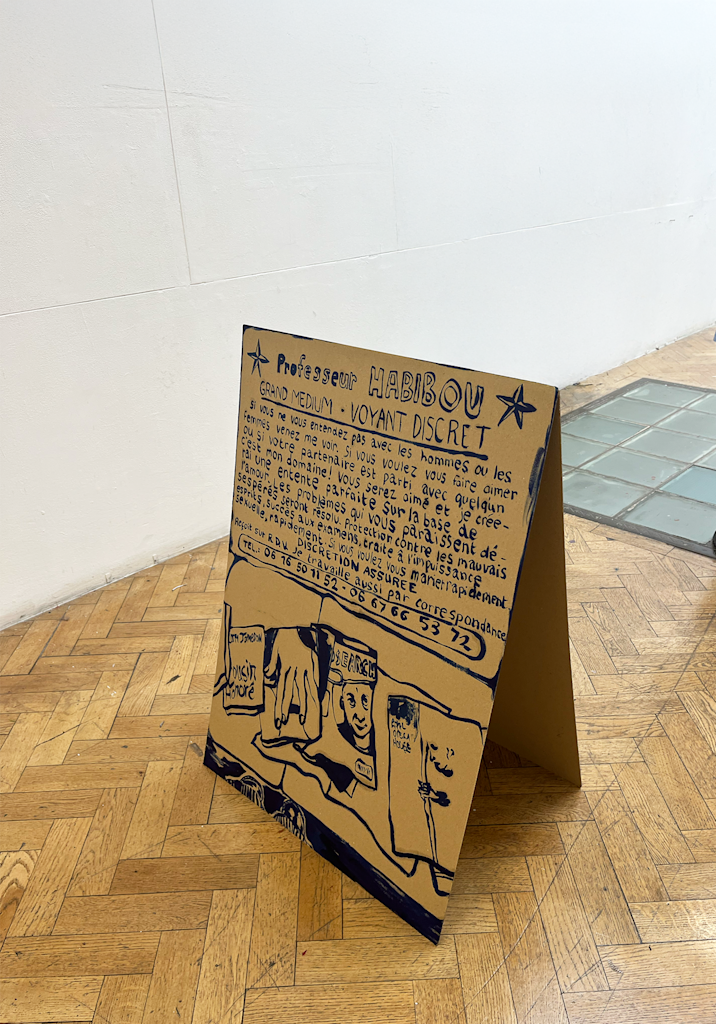 Professeur HABIBOU
GRAND MEDIUM • VOYANT DISCRET
Si vous ne vous entendez pas avec les hommes ou les
femmes venez me voir. Si vous voulez vous faire aimer
ou si votre partenaire est parti avec quelqun
c'est mon domaine! Vous serez aimé et je crée-
rai une entente parfaite sur la base de
l'amour. Les problèmes qui vous paraissent dé-
sespérés seront résolu. Protection contre les mauvais
esprits, succès aux examens, traite à l'impuissance
sexuelle, rapidement. Si vous voulez vous marier rapidement
DISCRETION ASSUREE
Reçoit sur R.D.V. Je travaille aussi par correspondance
TEL.: 06 16 50 11 52 - 06 67 66 53 72
SEARCH